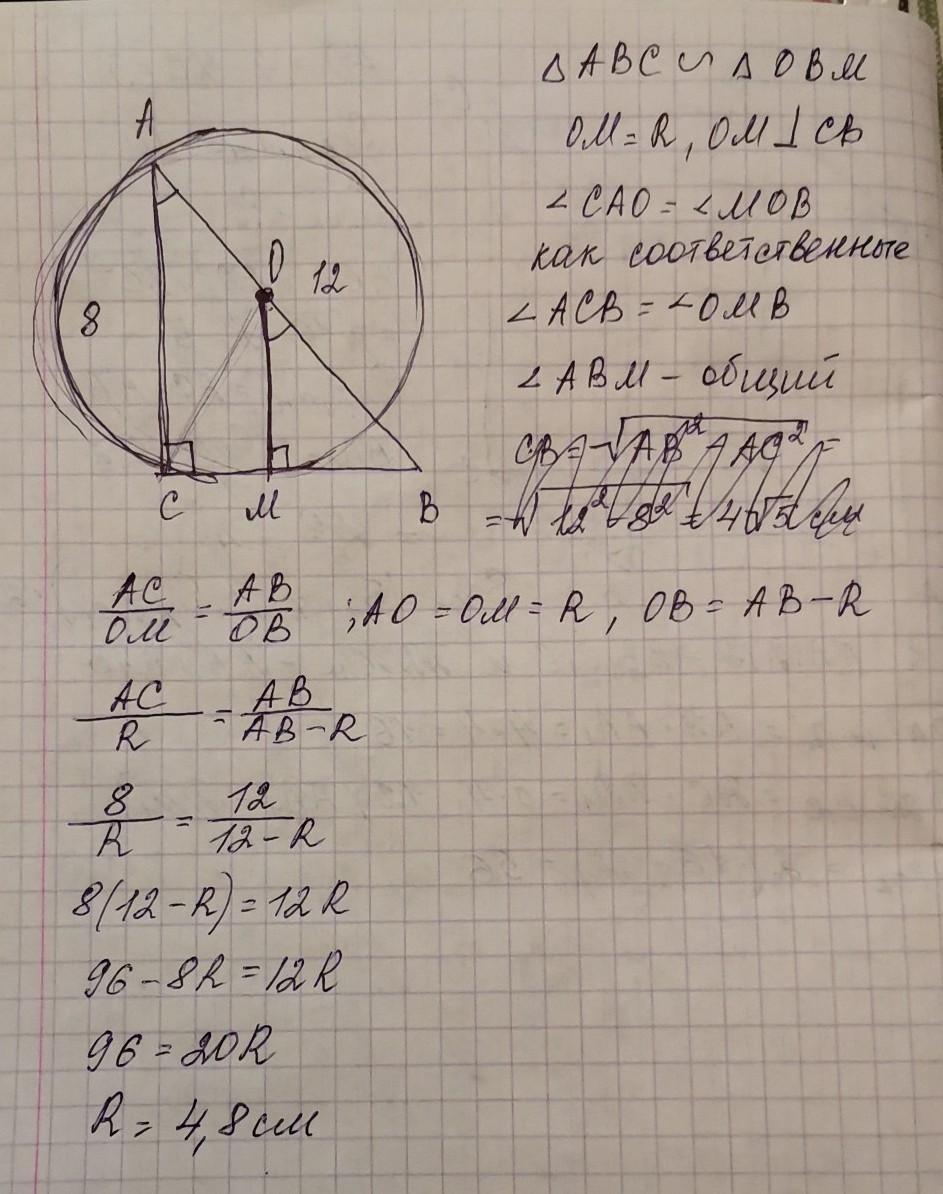 A
O
12
8
C
M
B
△ABC ∽ △OBM
OM = R, OM ⊥ CB
∠CAO = ∠MOB
как соответственные
∠ACB = ∠OMB
∠ABM - общий
CB = √(AB² - AC²) =
= √(12² - 8²) = 4√5 см
AC/OM = AB/OB ; AO = OM = R, OB = AB - R
AC/R = AB/(AB - R)
8/R = 12/(12 - R)
8(12 - R) = 12R
96 - 8R = 12R
96 = 20R
R = 4,8 см